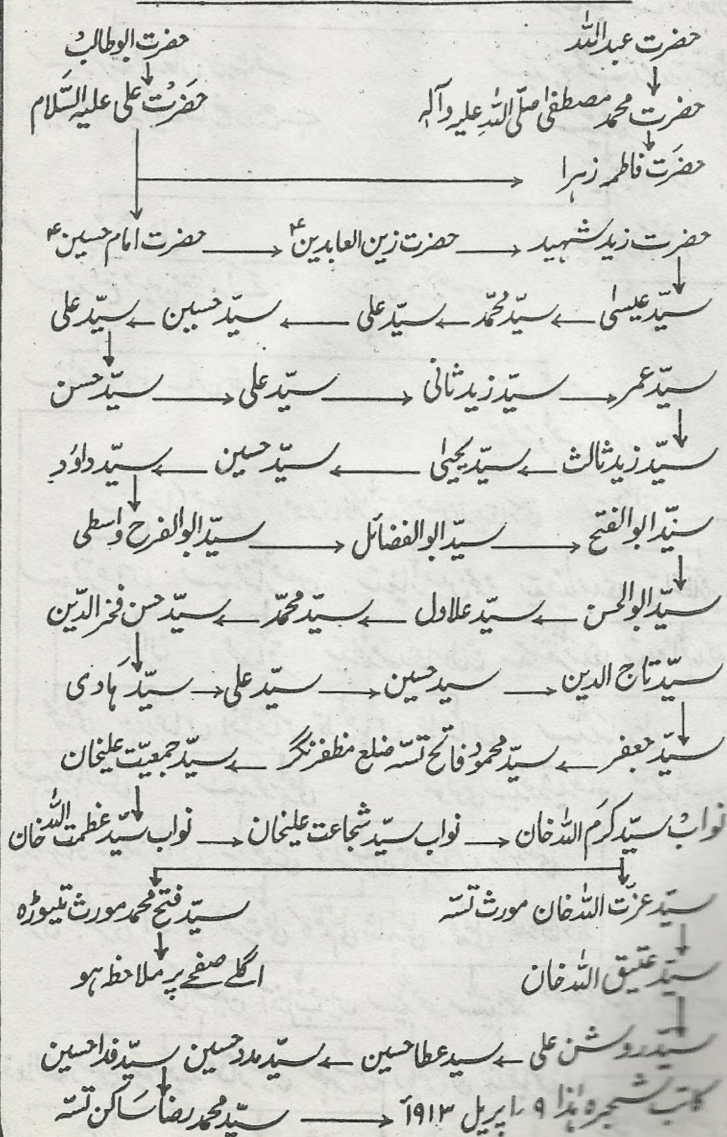 حضرت عبداللہ حضرت ابوطالبؑ
حضرت محمد مصطفیٰ صلّی اللہ علیہ وآلہ حضرت علی علیہ السّلام
حضرت فاطمہ زہرا
حضرت زید شہید حضرت زین العابدینؑ حضرت امام حسینؑ
سیّد عیسیٰ سیّد محمّد سیّد علی سیّد حسین سیّد علی
سیّد عمر سیّد زید ثانی سیّد علی سیّد حسن
سیّد زید ثالث سیّد یحییٰ سیّد حسین سیّد داؤد
سیّد ابوالفتح سیّد ابوالفضائل سیّد ابوالفرح واسطی
سیّد ابوالحسن سیّد علاول سیّد محمّد سیّد حسن فخرالدّین
سیّد تاج الدین سید حسین سیّد علی سیّد ہادی
سیّد جعفر سیّد محمود فاتح تسّہ ضلع مظفرنگر سیّد جمعیّت علیخان
نواب سیّد کرم اللہ خان نواب سیّد شجاعت علیخان نواب سیّد عظمت اللہ خان
سیّد عزّت اللہ خان مورث تسّہ سیّد فتح محمد مورث تیوڑہ
سیّد عتیق اللہ خان اگلے صفحے پر ملاحظہ ہو
سیّد روشن علی سید عطا حسین سیّد مدد حسین سیّد فدا حسین
کاتب شجرہ ہٰذا ۹ اپریل ۱۹۱۳ سیّد محمد رضا ساکن تسّہ